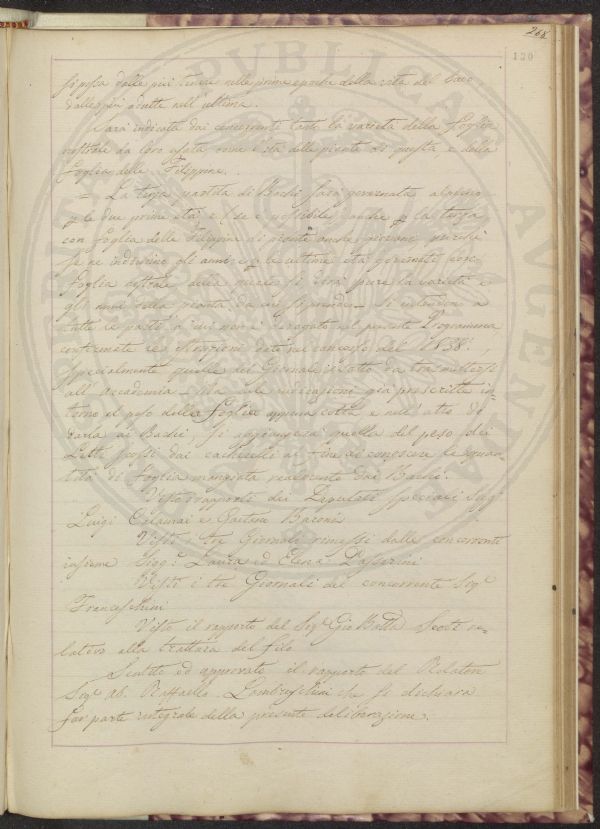 268
120
si possa dalle più tenere nelle prime epoche della vita del Baco,
dalle più adulte nell'ultima.
Sarà indicata dai concorrenti tanto la varietà della foglia
nostrale da loro usata come l'età delle piante di questa e della
foglia delle Filippine.
= La terza partita di Bachi sarà governata almeno
p le due prime età, e se è possibile anche p la terza
con foglia delle Filippine di piante anche giovani purchè
se ne indichino gli anni; e p le ultime età governati con
foglia nostrale della quale si dirà pure la varietà e
gli anni della pianta da cui si prende = Si intendono in
tutte le parti a cui non è derogato nel presente Programma
confermate le istruzioni date nel concorso del 1838,
specialmente quelle del Giornale esatto da trasmettersi
all'Accademia. Ma alle indicazioni già prescritte in-
torno al peso della Foglia appena colta, e nell'atto di
darla ai Bachi, si aggiungerà quella del peso dei
Letti tolti dai cannicci al fine di conoscere la quan-
tità di Foglia mangiata realmente dai Bachi.
Visto i rapporti dei Deputati speciali Sigg.i
Luigi Calamai e Gaetano Baroni
Visti i tre Giornali rimessi dalle concorrenti
insieme Sigg.e Laura ed Elena Passerini
Visti i tre Giornali del concorrente Sig.e
Franceschini
Visto il rapporto del Sig.e Gio Batta Scoti re-
lativo alla trattura del filo
Sentito ed approvato il rapporto del Relatore
Sig.e Ab. Raffaello Lambruschini che si dichiara
far parte integrale della presente deliberazione.